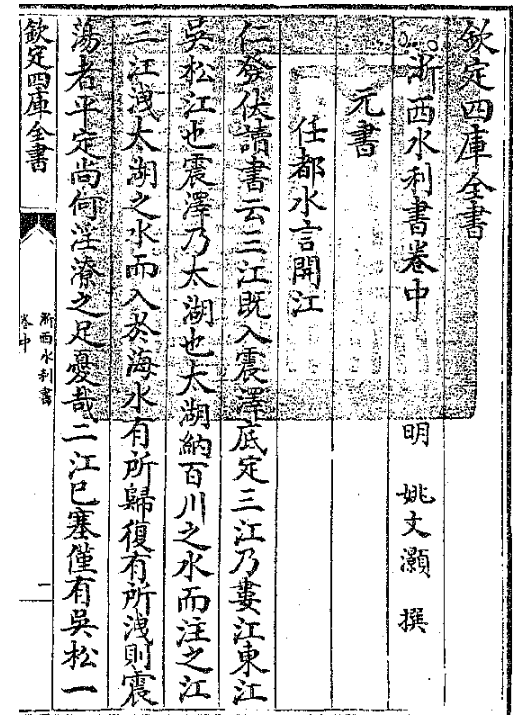 欽定四庫全書
浙西水利書卷中
明 姚文灝 撰
元書
任都水言開江
仁發伏讀書云三江既入震澤底定三江乃婁江東江
吳松江也震澤乃太湖也太湖納百川之水而注之江
三江洩太湖之水而入於海水有所歸復有所洩則震
蕩者平定尚何淫潦之足憂哉二江已塞僅有吳松一
欽定四庫全書
浙西水利書
卷中
二